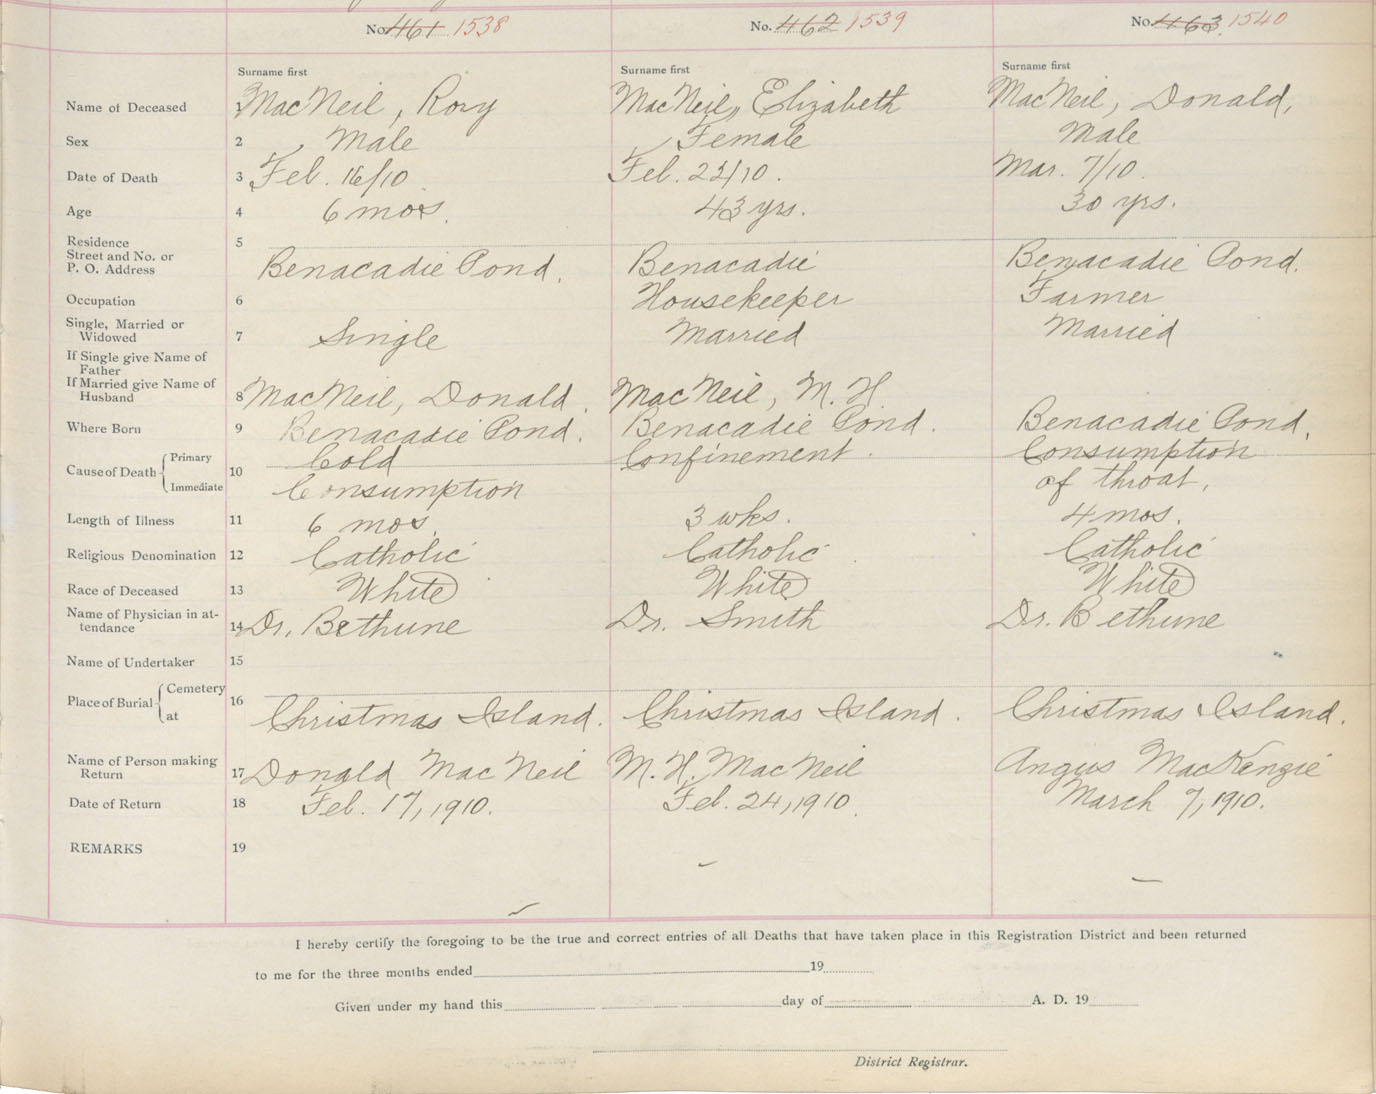 No. 461 1538 No. 462 1539 No. 463 1540
Surname first Surname first Surname first
Name of Deceased 1 MacNeil, Rory MacNeil, Elizabeth MacNeil, Donald,
Sex 2 Male Female Male
Date of Death 3 Feb. 16/10 Feb. /10. Mar. 7/10.
Age 4 6 mos. 43 yrs. 30 yrs.
Residence 5
Street and No. or
P. O. Address Benacadie Pond. Benacadie Benacadie Pond.
Occupation 6 Housekeeper Farmer
Single, Married or
Widowed 7 Single Married Married
If Single give Name of
Father
If Married give Name of
Husband 8 MacNeil, Donald. MacNeil, M. H
Where Born 9 Benacadie Pond. Benacadie Pond. Benacadie Pond.
Cause of Death 10 Primary Cold Confinement. Consumption
Immediate Consumption of throat.
Length of Illness 11 6 mos. 3 wks. 4 mos.
Religious Denomination 12 Catholic Catholic Catholic
Race of Deceased 13 White White White
Name of Physician in at-
tendance 14 Dr. Bethune Dr. Smith Dr. Bethune
Name of Undertaker 15
Place of Burial 16 Cemetery
at Christmas Island. Christmas Island. Christmas Island.
Name of Person making
Return 17 Donald MacNeil M. H. MacNeil Angus MacKenzie
Date of Return 18 Feb. 17, 1910. Feb. 24, 1910. March 7, 1910.
REMARKS 19
I hereby certify the foregoing to be the true and correct entries of all Deaths that have taken place in this Registration District and been returned
to me for the three months ended 19
Given under my hand this day of A. D. 19
District Registrar.